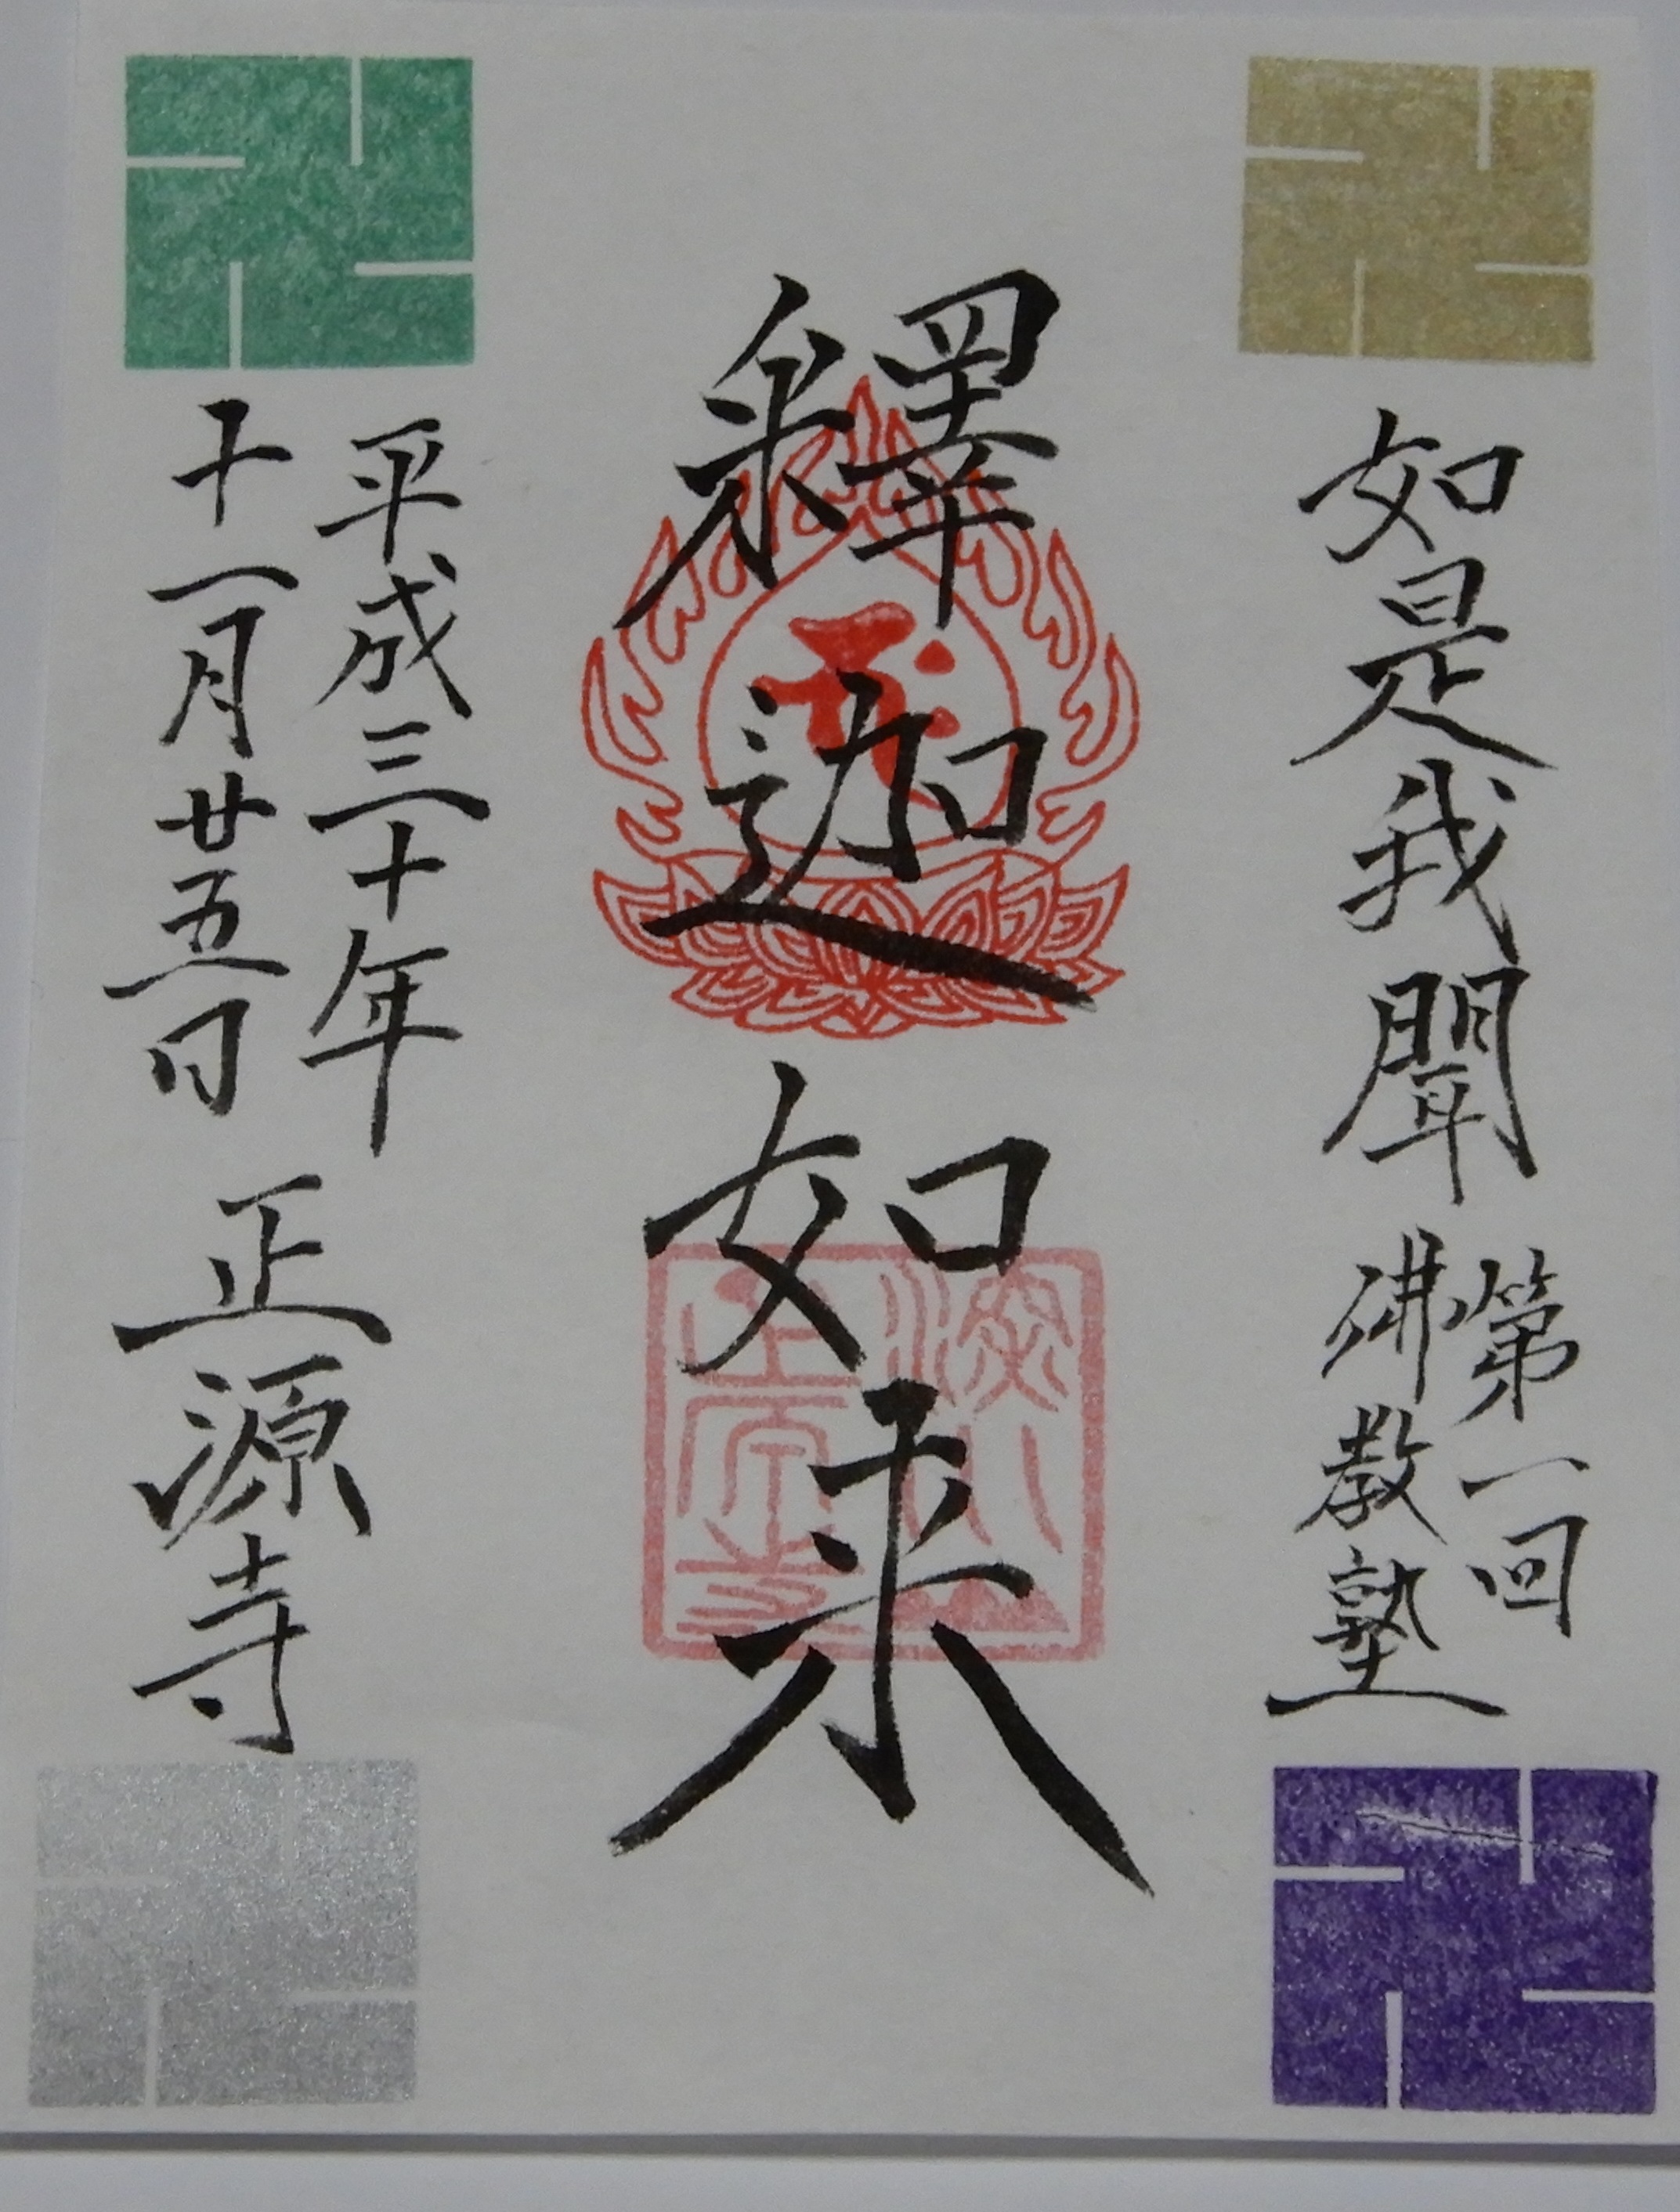 如是我聞
第一回
佛教塾
釋迦如来
平成三十年
十一月廿五日
正源寺